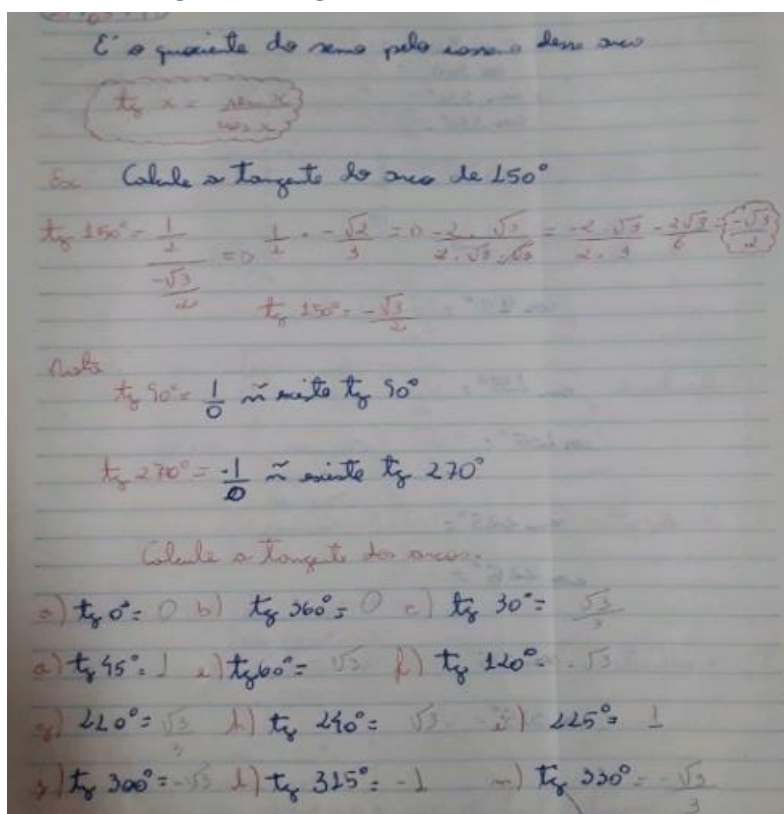 É o quociente do seno pelo cosseno desse arco
tg x = sen x / cos x
Ex Calcule a tangente do arco de 150°
tg 150° = 1/2 / -√3/2 => 1/2 . -√2/3 => -2 . √3 / 2 . √3 . √3 = -2 . √3 / 2 . 3 = -2√3 / 6 = -√3 / 2
tg 150° = -√3/2
Nota
tg 90° = 1/0 ñ existe tg 90°
tg 270° = -1/0 ñ existe tg 270°
Calcule a tangente dos arcos.
a) tg 0° = 0 b) tg 360° = 0 c) tg 30° = √3/3
d) tg 45° = 1 e) tg 60° = √3 f) tg 120° = -√3
g) 210° = √3/3 h) tg 240° = √3 i) 225° = 1
j) tg 300° = -√3 l) tg 315° = -1 m) tg 330° = -√3/3